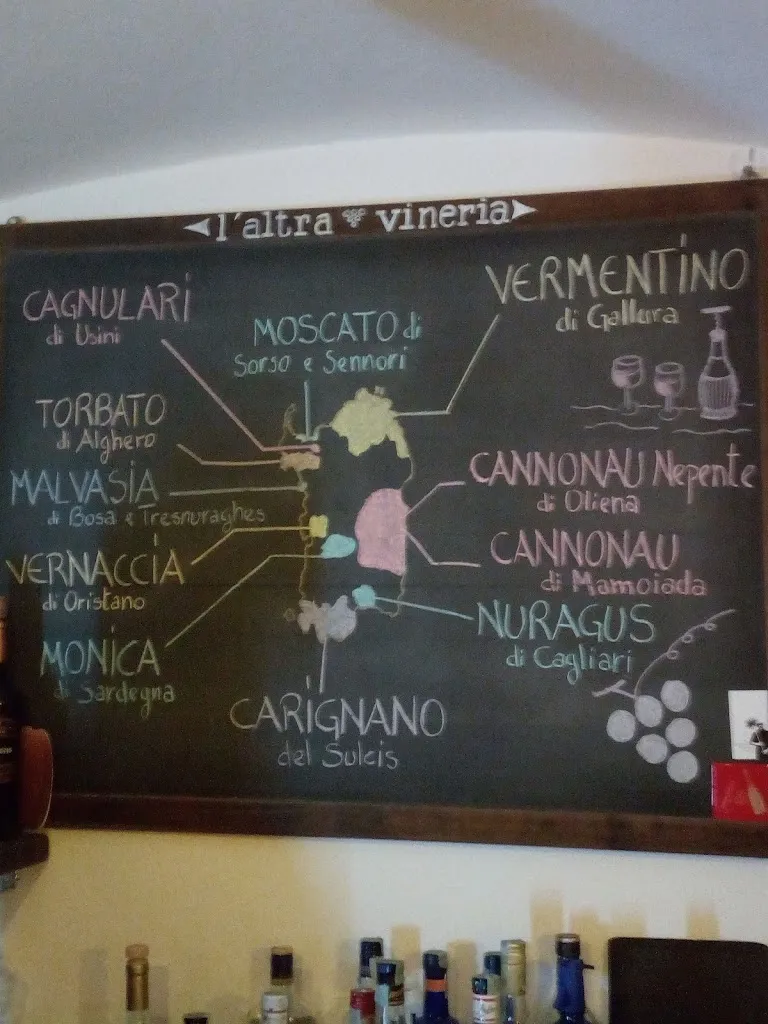 l'altra vineria
CAGNULARI
di Usini
MOSCATO di
Sorso e Sennori
VERMENTINO
di Gallura
TORBATO
di Alghero
MALVASIA
di Bosa e Tresnuraghes
VERNACCIA
di Oristano
MONICA
di Sardegna
CANNONAU Nepente
di Oliena
CANNONAU
di Mamoiada
NURAGUS
di Cagliari
CARIGNANO
del Sulcis